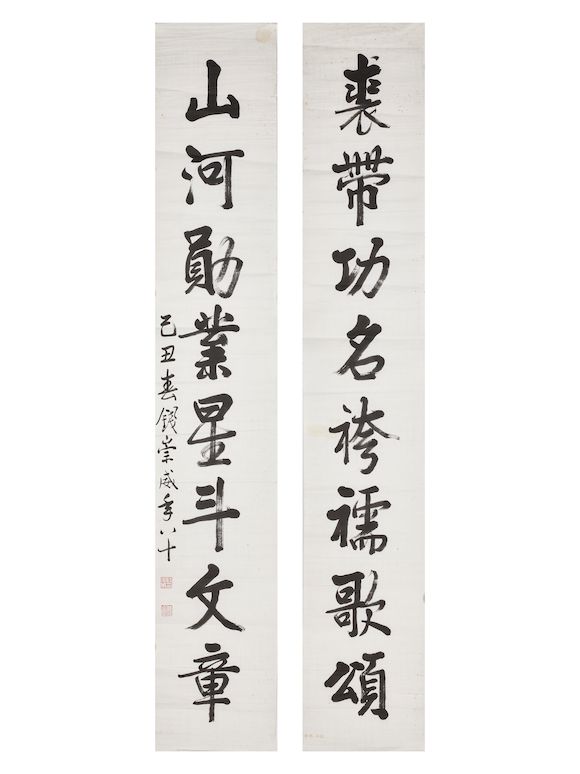 裘帶功名袴襦歌頌
山河勛業星斗文章
己丑春錢崇威年八十